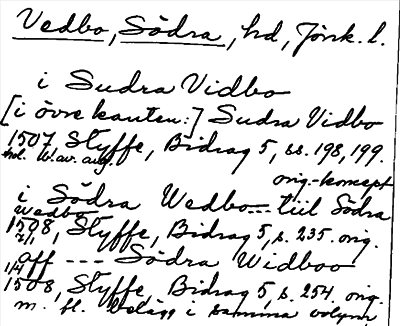 Vedbo, Södra, hd, Jönk. l.
i Sudra Vidbo
[i övre kanten:] Sudra Vidbo
1507, Styffe, Bidrag 5, ss. 198, 199.
av. aug.
orig.-koncept
i Södra Wedbo --- tiil Södra
Wedbo
1508, Styffe, Bidrag 5, s. 235. orig.
7/1
aff --- Södra Widboo
1/4
1508, Styffe, Bidrag 5, s. 254. orig.
m. fl. belägg i samma volym